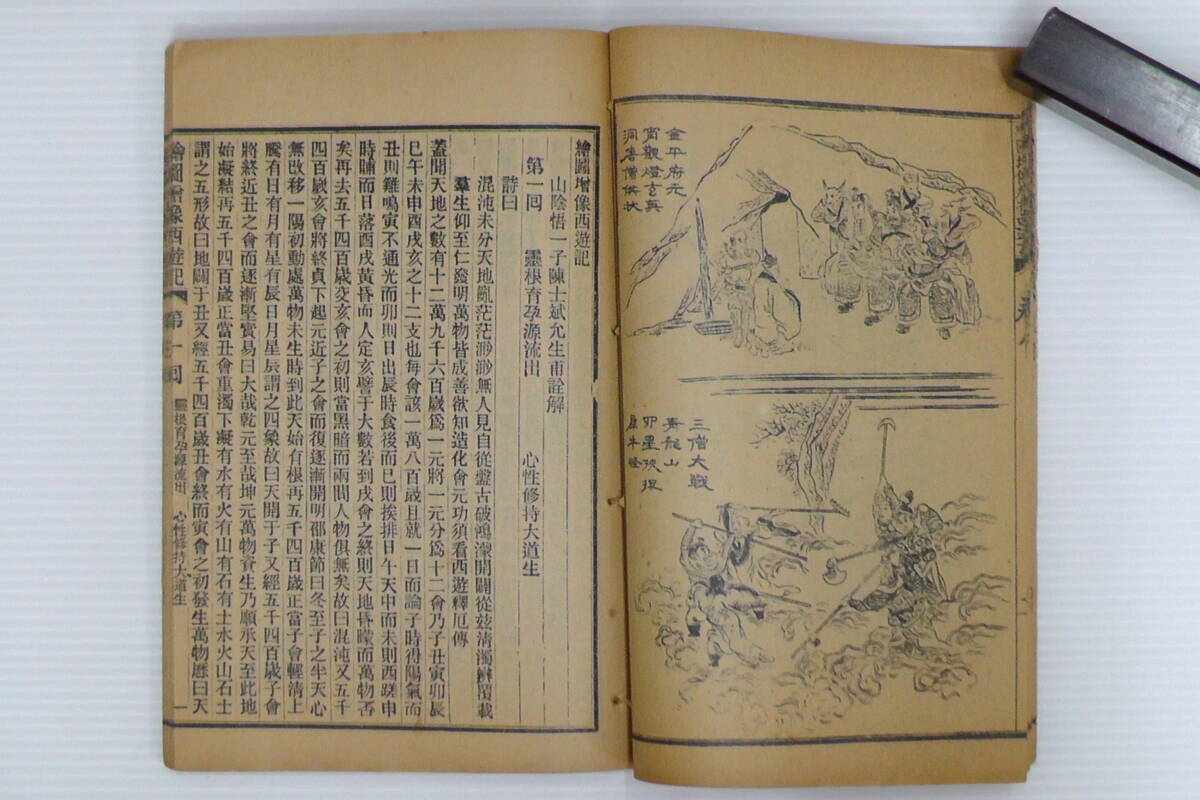 金平府元
宵觀燈玄英
洞唐僧供状
三僧大戰
青龍山
四星挾捉
犀牛怪
繪圖增像西遊記
山陰悟一子陳士斌允生甫詮解
第一回 靈根育孕源流出 心性修持大道生
詩曰
混沌未分天地亂茫茫渺渺無人見自從盤古破鴻濛開闢從玆清濁辨覆載
羣生仰至仁發明萬物皆成善欲知造化會元功須看西遊釋厄傳
蓋聞天地之數有十二萬九千六百歲爲一元將一元分爲十二會乃子丑寅卯辰
巳午未申酉戌亥之十二支也每會該一萬八百歲且就一日而論子時得陽氣而
丑則雞鳴寅不通光而卯則日出辰時食後而巳則挨排日午天中而未則西蹉申
時晡而日落酉戌黃昏而人定亥譬于大數若到戌會之終則天地昏曚而萬物否
矣再去五千四百歲交亥會之初則當黑暗而兩間人物俱無矣故曰混沌又五千
四百歲亥會將終貞下起元近子之會而復逐漸開明邵康節曰冬至子之半天心
無改移一陽初動處萬物未生時到此天始有根再五千四百歲正當子會輕清上
騰有日有月有星有辰日月星辰謂之四象故曰天開于子又經五千四百歲子會
將終近丑之會而逐漸堅實易曰大哉乾元至哉坤元萬物資生乃順承天至此地
始凝結再五千四百歲正當丑會重濁下凝有水有火有山有石有土水火山石土
謂之五形故曰地闢于丑又經五千四百歲丑會終而寅會之初發生萬物曆曰天
繪圖增像西遊記 第一回 靈根育孕源流出 心性修持大道生 一